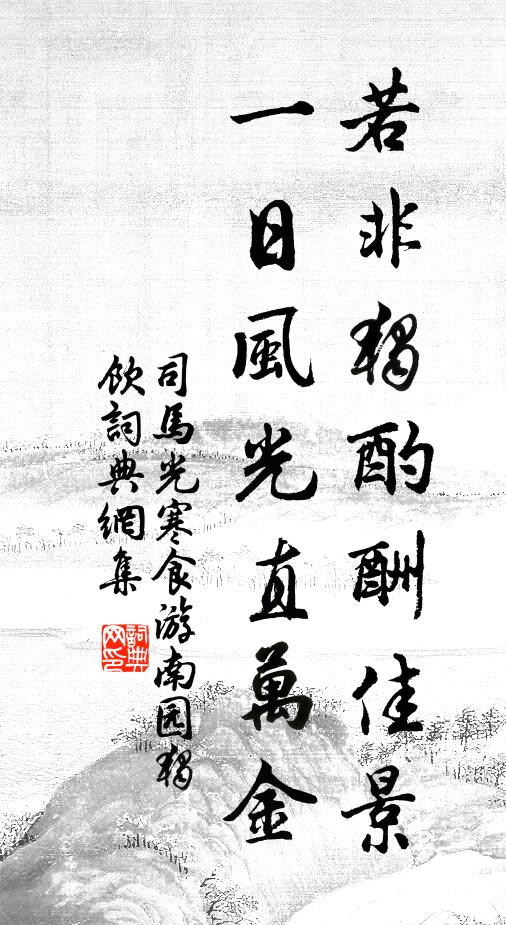 若非獨酌酬佳景
一日風光直萬金
司馬光寒食游南园獨
飲詞典網集
詞典
网印